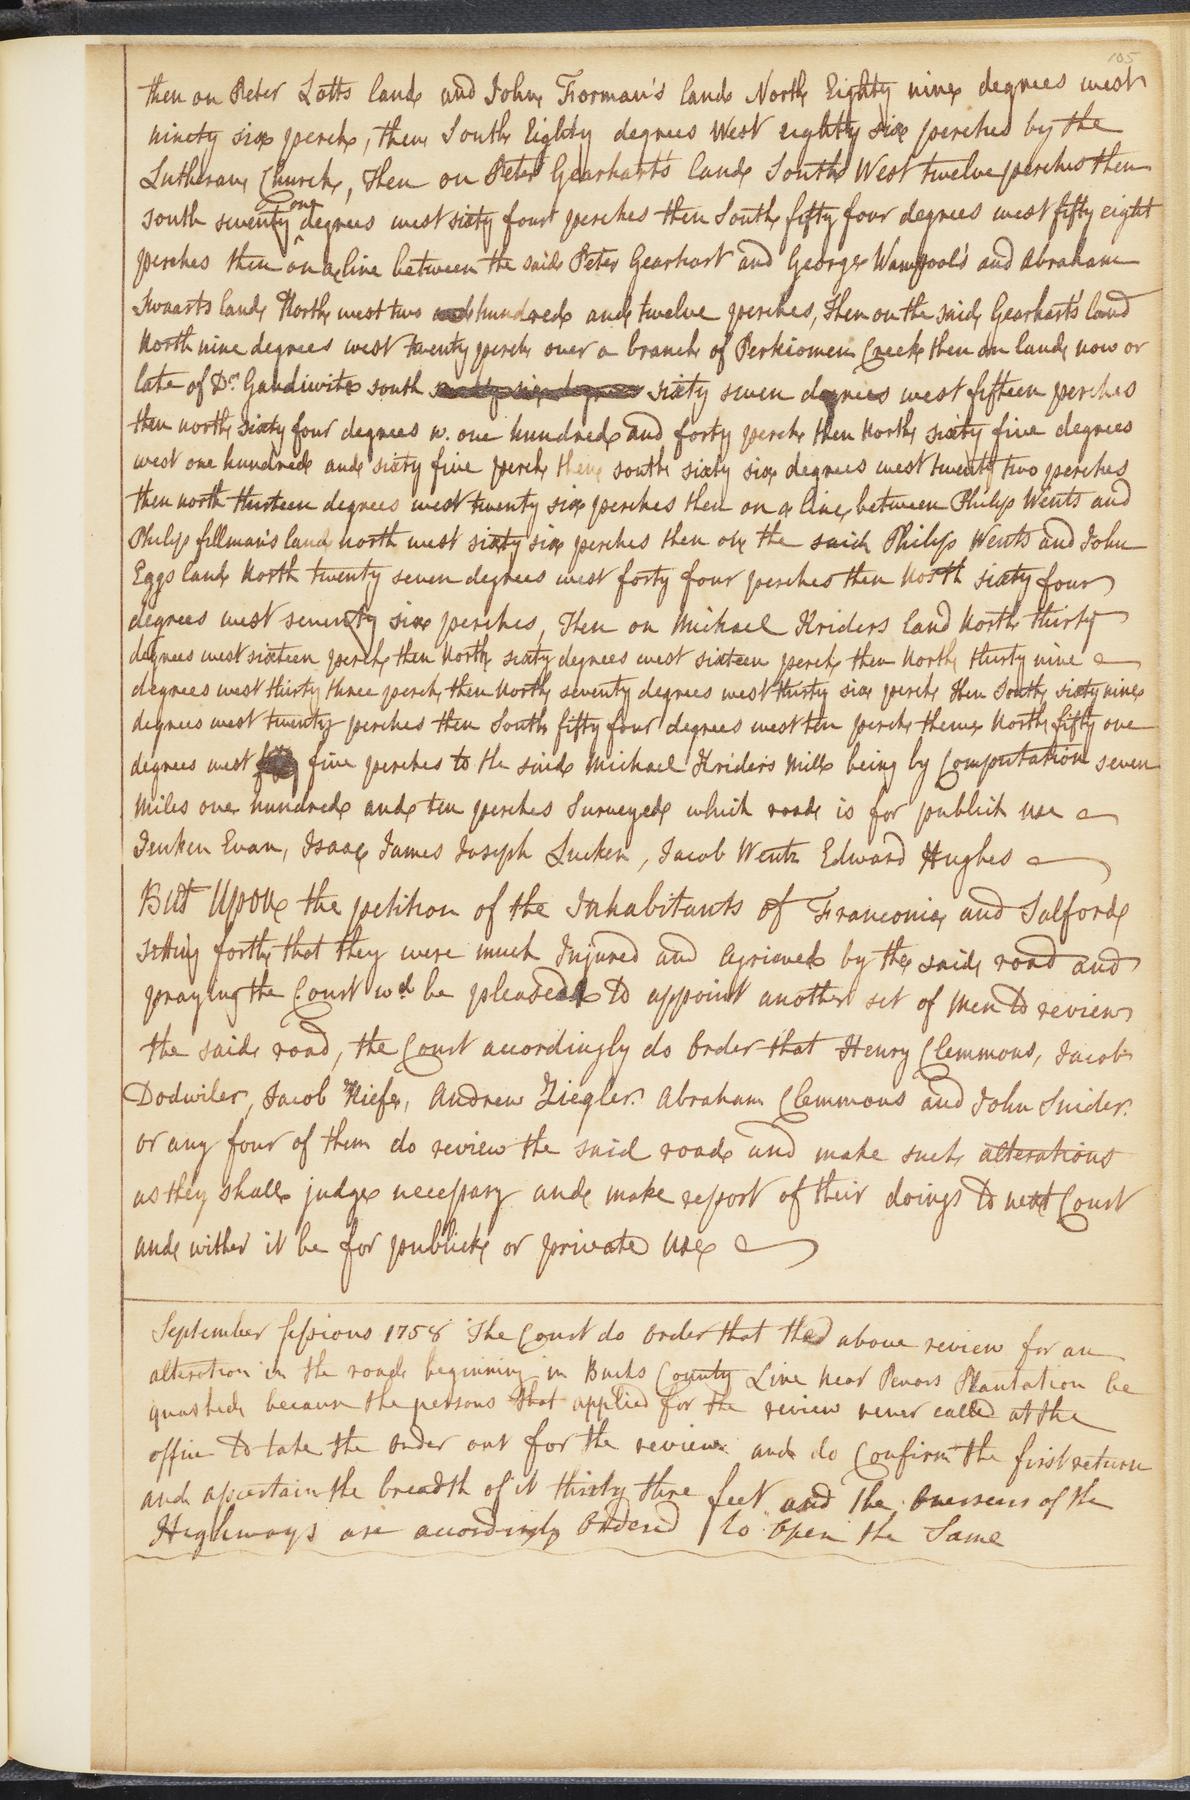 105
then on Peter Lotts land and John Forman's land North Eighty nine degrees west
ninety six perch, then South Eighty degrees West eighty six perches by the
Lutheran Church, Then on Peter Gearharts land South West twelve perches then
one
south seventy degrees west sixty four perches then South fifty four degrees west fifty eight
perches then on a line between the said Peter Gearhart and George Wampool's and Abraham
Swaarts land North west two hundred and twelve perches, Then on the said Gearharts land
North nine degrees west twenty perch over a branch of Perkiomen Creek then on land now or
late of Dr. Gandiwits south sixty seven degrees west fifteen perches
then north sixty four degrees w. one hundred and forty perch then North sixty five degrees
west one hundred and sixty five perch then south sixty six degrees west twenty two perches
then north thirteen degrees west twenty six perches then on a line between Philip Wents and
Philip fillman's land north west sixty six perches then on the said Philip Wents and John
Eggs land North twenty seven degrees west forty four perches then North sixty four
degrees west seventy six perches, Then on Michael Kriders land North thirty
degrees west sixteen perch then North sixty degrees west sixteen perch then North thirty nine
degrees west thirty three perch then North seventy degrees west thirty six perch then South sixty nine
degrees west twenty perches then South fifty four degrees west ten perch thence North fifty one
degrees west five perches to the said Michael Kriders Mill being by Computation seven
Miles one hundred and ten perches Surveyed which road is for publick use
Jenken Evan, Isaac James Joseph Lucken, Jacob Wentz Edward Hughes
But Upon the petition of the Inhabitants of Franconia and Salford
setting forth that they were much Injured and Agrieved by the said road and
praying the Court wd. be pleased to appoint another set of Men to review
the said road, the Court accordingly do Order that Henry Clemmons, Jacob
Dodwiler, Jacob Kiefer, Andrew Ziegler. Abraham Clemmons and John Snider.
or any four of them do review the said road and make such alterations
as they shall judge necessary and make report of their doings to next Court
and wither it be for publick or private use
September Sessions 1758 The Court do Order that the above review for an
alteration in the road beginning in Bucks County Line near Penars Plantation be
quashed, because the persons that applied for the review never called at the
office to take the Order out for the review and do Confirm the first return
and ascertain the breadth of it thirty three feet and the Overseers of the
Highways are accordingly Ordered to Open the Same